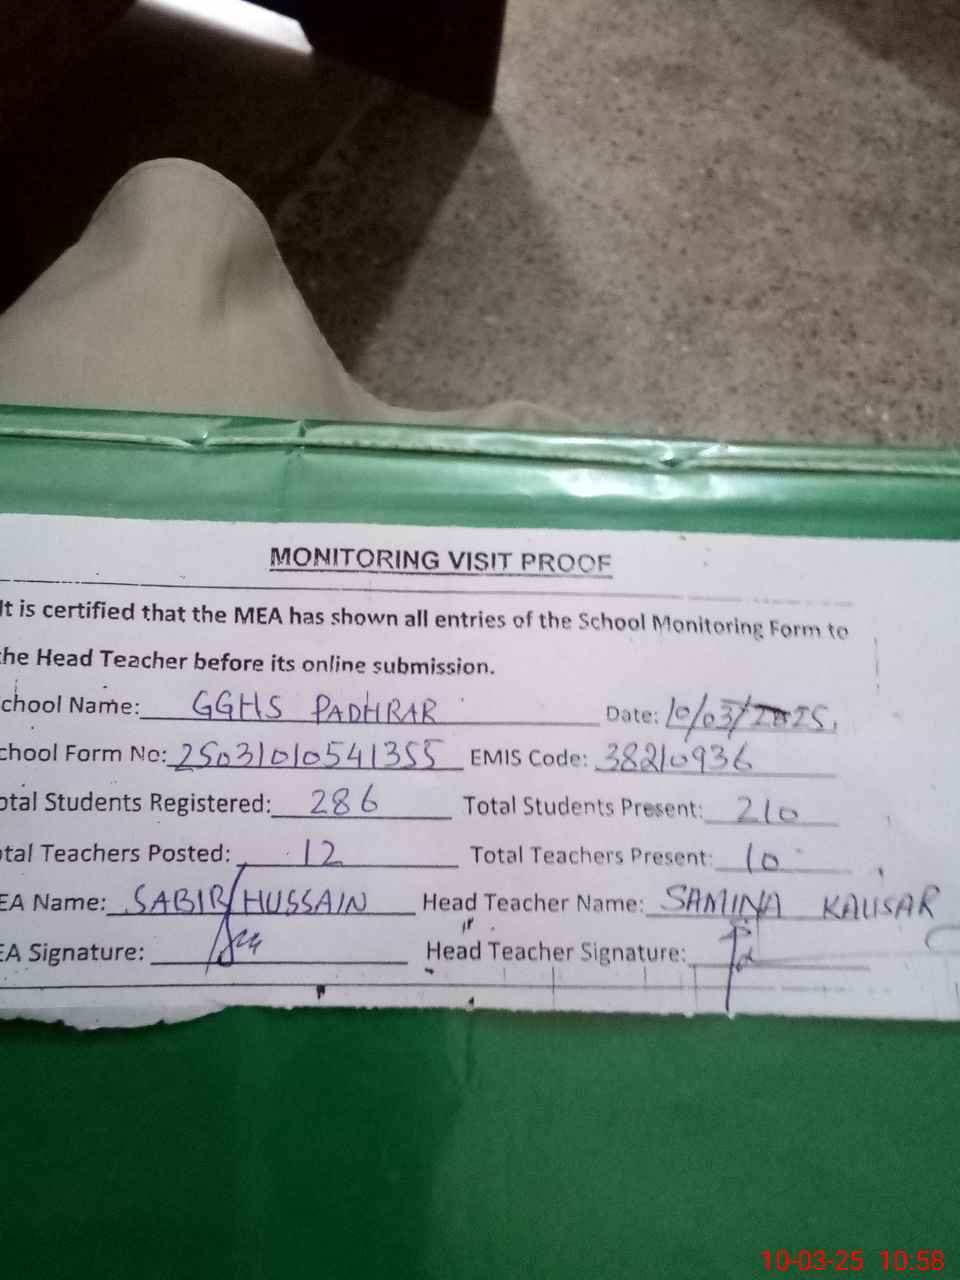 MONITORING VISIT PROOF
It is certified that the MEA has shown all entries of the School Monitoring Form to
the Head Teacher before its online submission.
chool Name: GGHS PADHRAR Date: 10/03/2025.
chool Form No: 25031010541355 EMIS Code: 38210936
otal Students Registered: 286 Total Students Present: 210
otal Teachers Posted: 12 Total Teachers Present: 10
EA Name: SABIR HUSSAIN Head Teacher Name: SAMINA KAUSAR
EA Signature: Head Teacher Signature:
10-03-25 10:58